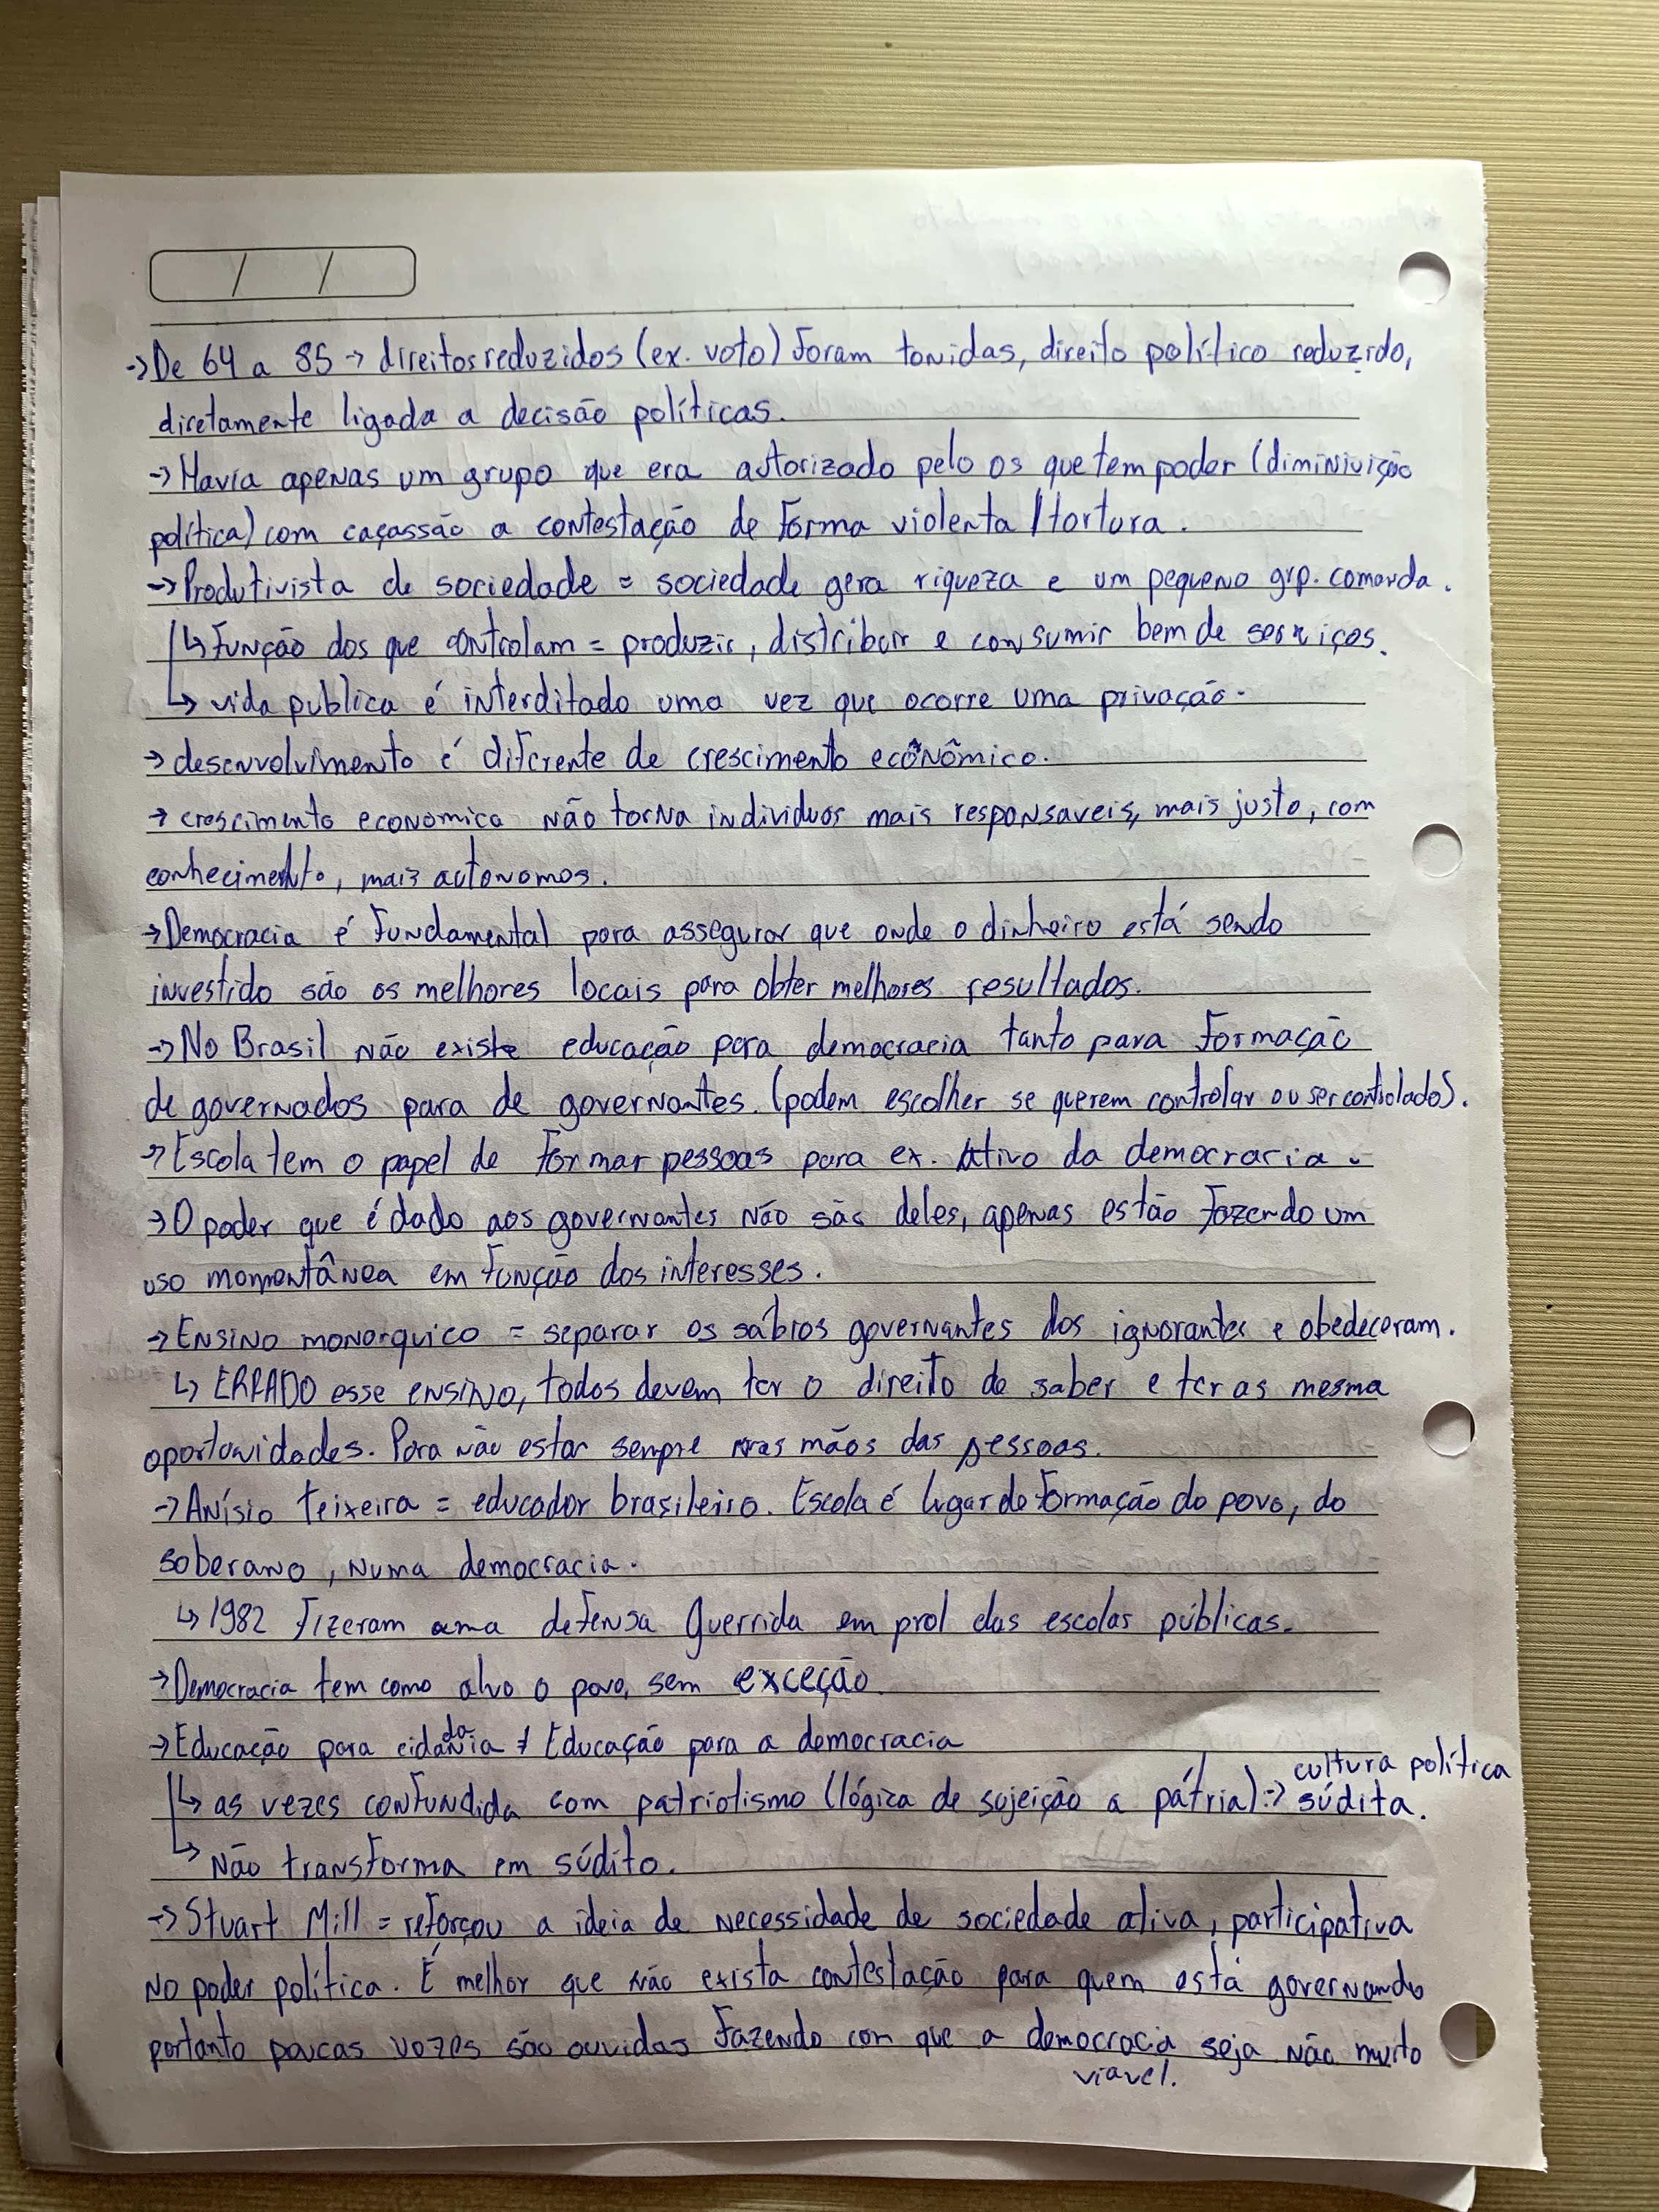 / /
→De 64 a 85 → direitos reduzidos (ex. voto) foram tonidas, direito político reduzido,
diretamente ligada a decisão políticas.
→ Havia apenas um grupo que era autorizado pelo os que tem poder (diminiuição
política) com caçassão a contestação de forma violenta / tortura.
→ Produtivista de sociedade = sociedade gera riqueza e um pequeno grp. comanda.
↳ Função dos que controlam = produzir, distribuir e consumir bem de serviços.
↳ vida publica é interditado uma vez que ocorre uma privação.
→ desenvolvimento é diferente de crescimento econômico.
→ crescimento economico não torna individuos mais responsaveis, mais justo, com
conhecimento, mais autonomos.
→ Democracia é fundamental para assegurar que onde o dinheiro está sendo
investido são os melhores locais para obter melhores resultados.
→ No Brasil não existe educação para democracia tanto para formação
de governados para de governantes. (podem escolher se querem controlar ou ser controlado).
→ Escola tem o papel de formar pessoas para ex. Ativo da democraria.
→ O poder que é dado aos governantes não são deles, apenas estão fazendo um
uso momentânea em função dos interesses.
→ Ensino monarquico = separar os sábios governantes dos ignorantes e obedeceram.
↳ ERRADO esse ensino, todos devem ter o direito de saber e ter as mesma
oportunidades. Para não estar sempre nas mãos das pessoas.
→ Anísio Teixeira = educador brasileiro. Escola é lugar de formação do povo, do
soberano, numa democracia.
↳ 1982 fizeram uma defensa guerrida em prol das escolas públicas.
→ Democracia tem como alvo o povo, sem exceção.
→ Educação para cidadania ≠ Educação para a democracia
↳ as vezes confundida com patriotismo (lógica de sujeição a pátria) → cultura política
súdita.
↳ Não transforma em súdito.
→ Stuart Mill = reforçou a ideia de necessidade de sociedade ativa, participativa
no poder política. É melhor que não exista contestação para quem está governando
portanto poucas vozes são ouvidas fazendo com que a democracia seja não muito
viavel.